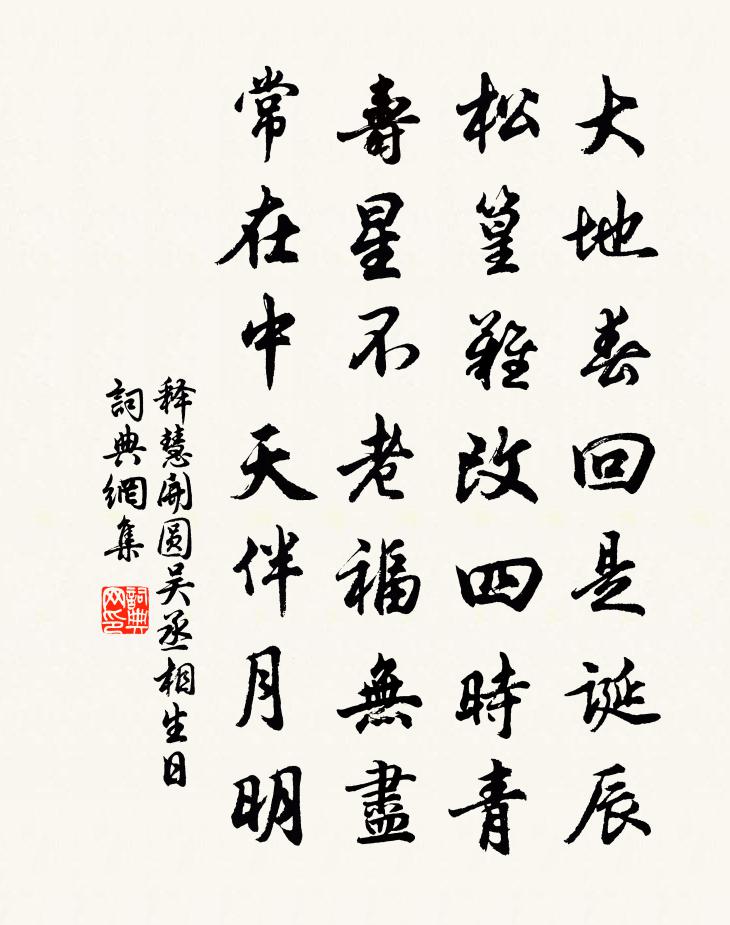 大地春回是誕辰
松篁難改四時青
壽星不老福無盡
常在中天伴月明
释慧開圆吴丞相生日
詞典網集
詞典网印